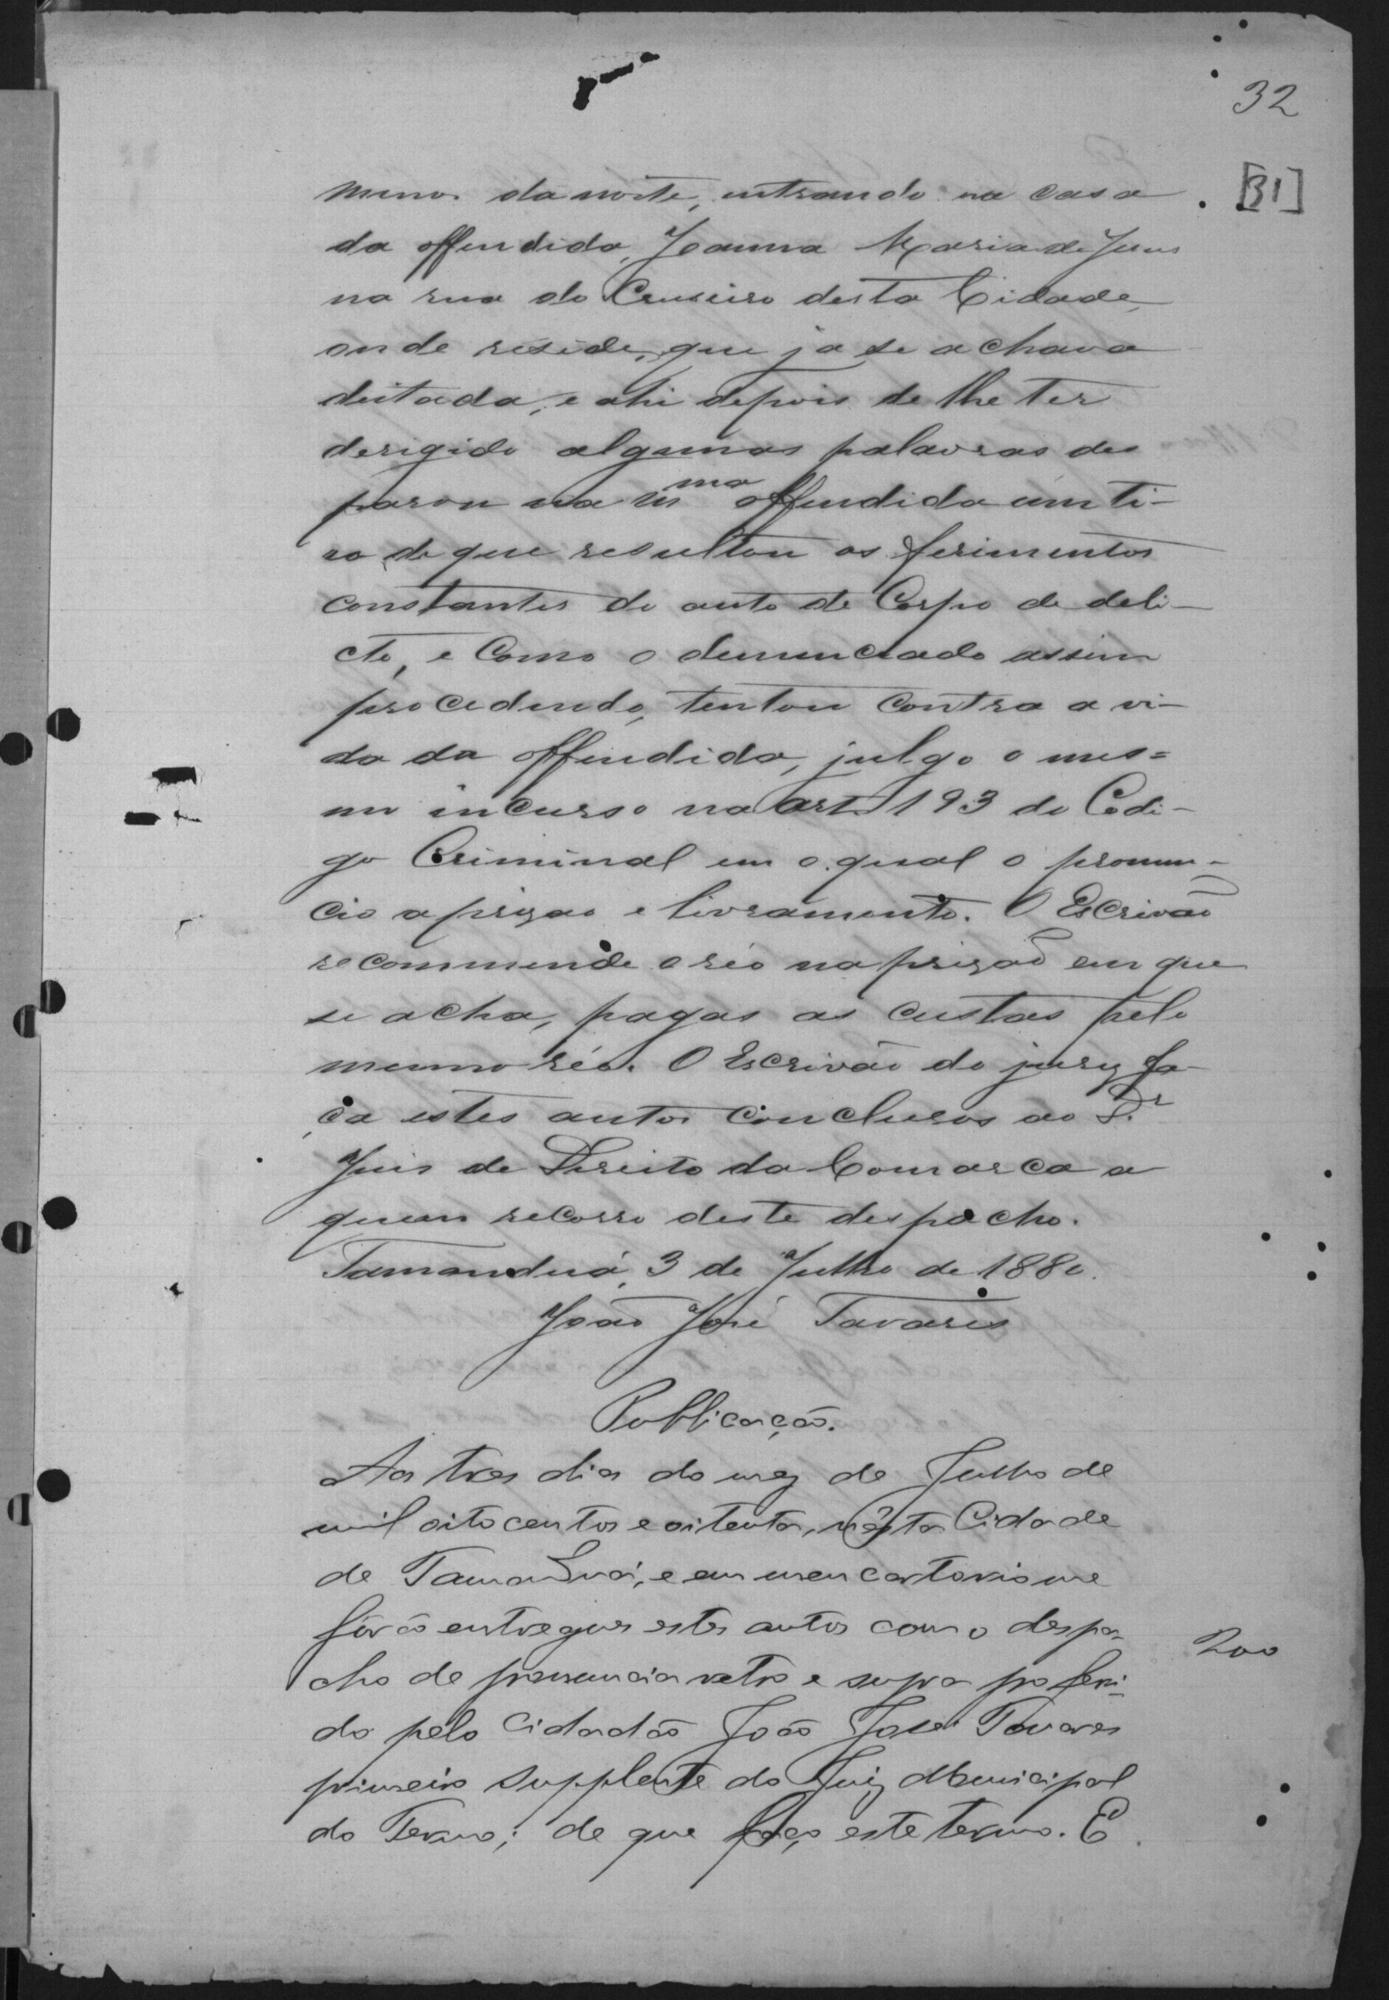 32
[31]
menos da noite, entrando na casa
da offendida, Joanna Maria de Jesus
na rua do Cruseiro desta Cidade,
onde reside, que ja se achava
deitada, e ahi depois de lhe ter
derigido algumas palavras des
parou na ms.ma offendida um ti-
ro de que resultou os ferimentos
constantes do auto de Corpo de deli-
cto, e como o denunciado assim
procedendo, tentou contra a vi-
da da offendida, julgo o mes=
mo incurso no art. 193 do Codi-
go Criminal em o qual o pronun-
cio a prizão e livramento. O Escrivão
recommende o réo na prizão em que
se acha, pagas as custas pelo
mesmo réo. O Escrivão do jury fa-
ça estes autos conclusos ao Dr
Juis de Direito da Comarca a
quem recorro deste despacho.
Tamanduá, 3 de Julho de 1880.
João José Tavares
Publicação.
Aos tres dias do mez de Julho de
mil oito centos e oitenta, nesta Cidade
de Tamanduá, e em meu cartorio me
fôrão entregues estes autos com o despa-
cho de pronuncia retro e supra proferi-
do pelo Cidadão João José Tavares
200
primeiro supplente do Juiz Municipal
do Termo; de que faço este termo. E